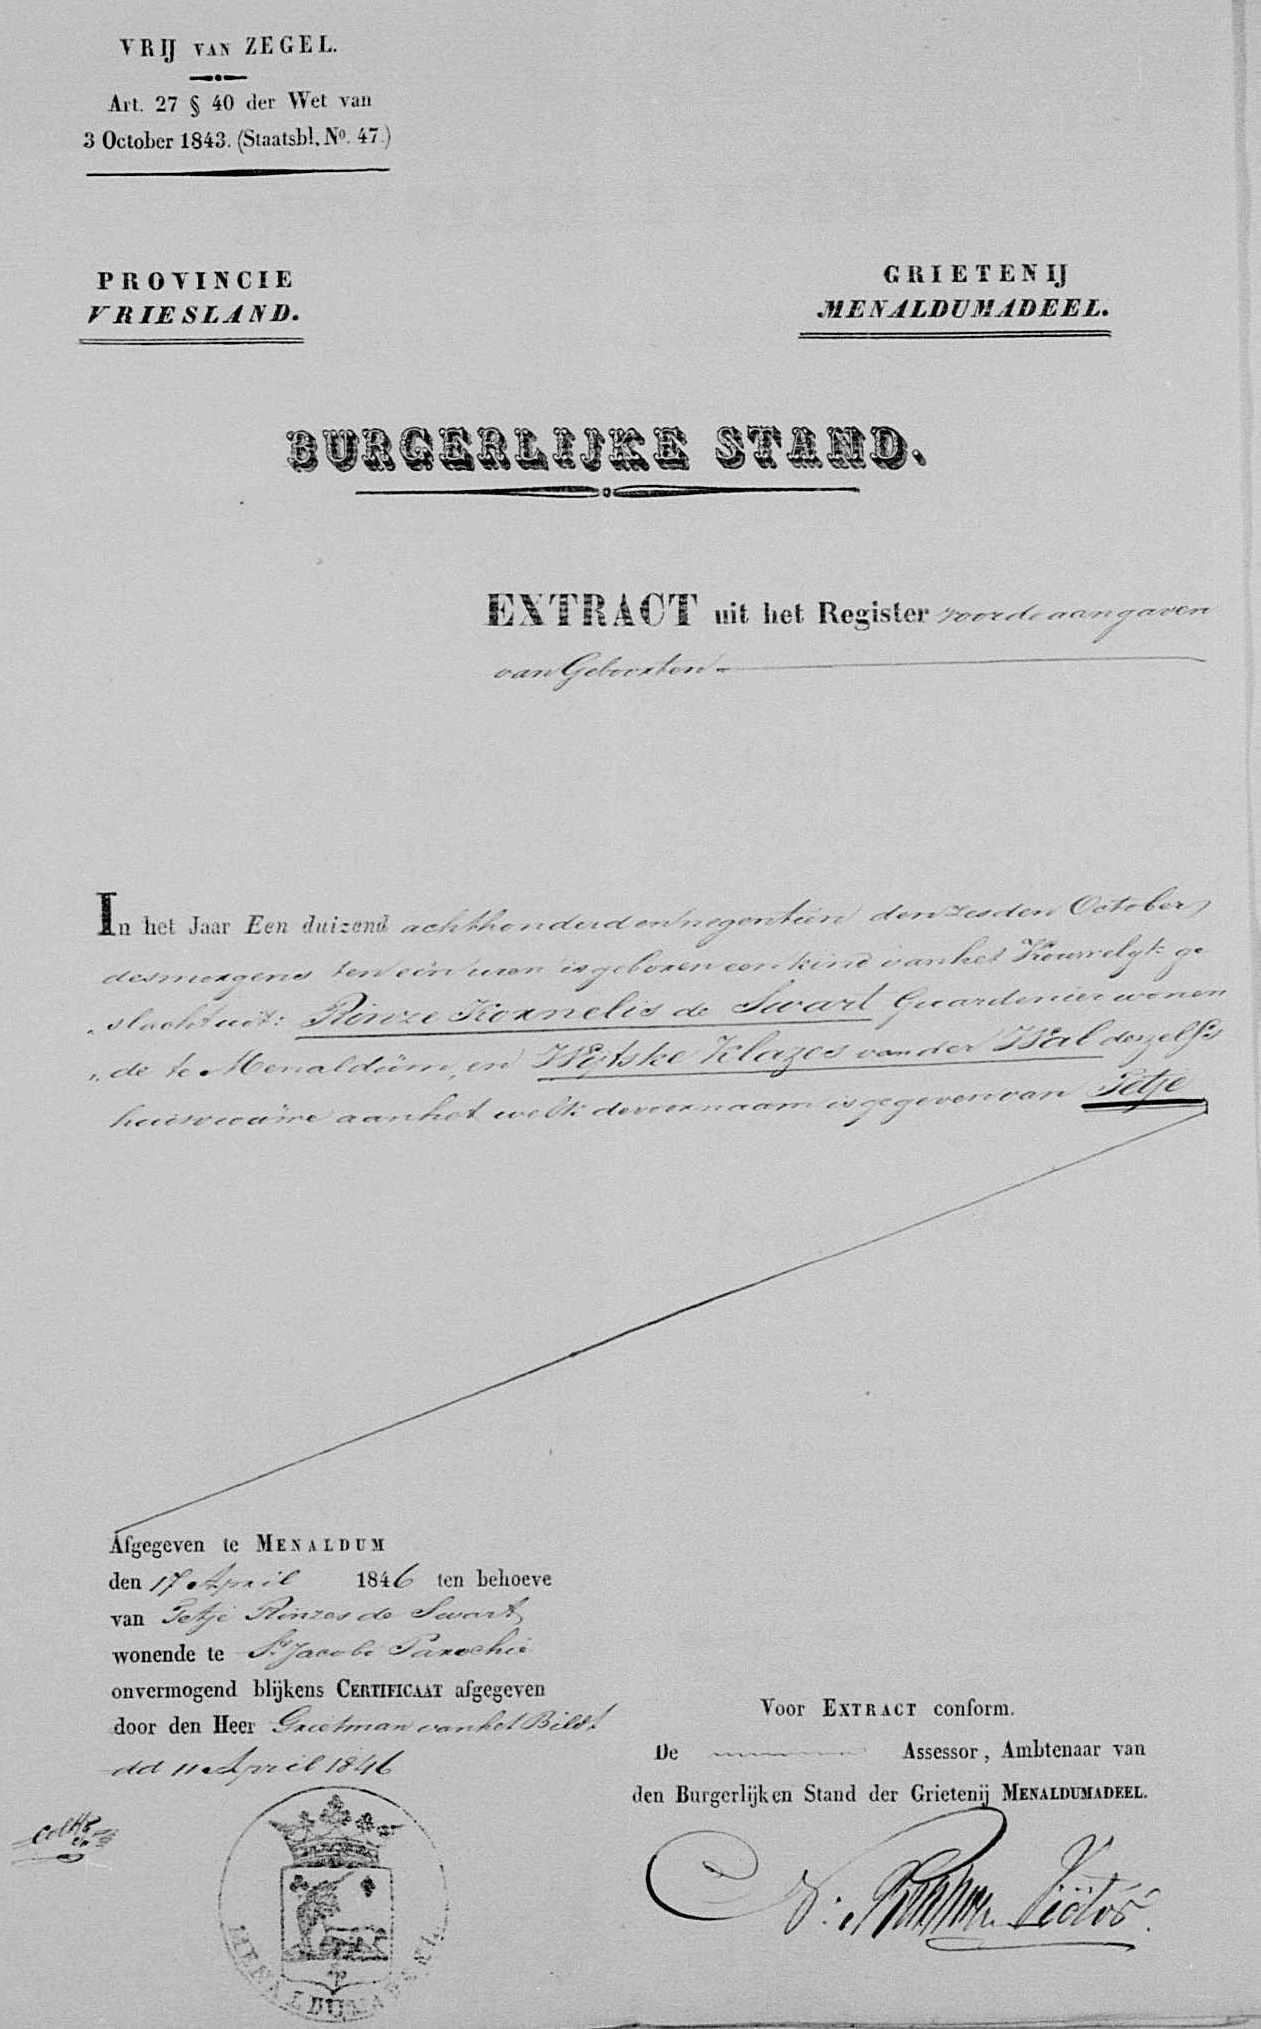 VRIJ VAN ZEGEL.
Art. 27 § 40 der Wet van
3 October 1843. (Staatsbl. No. 47.)
PROVINCIE
VRIESLAND.
GRIETENIJ
MENALDUMADEEL.
BURGERLIJKE STAND.
EXTRACT uit het Register voor de aangaven
van Geboorten
In het Jaar Een duizend achthonderd en negentien den zesden October,
des morgens ten één uren is geboren een kind van het Vrouwelyk ge
„slacht uit: Rinze Kornelis de Swart Gardenier wonen
„de te Menaldüm, en Wytske Klazes van der Wal deszelfs
huisvrouwe aan het welk de voornaam is gegeven van Tetje
Afgegeven te MENALDUM
den 17 April 1846 ten behoeve
van Tetje Rinzes de Swart
wonende te St. Jacobi Parochie
onvermogend blijkens CERTIFICAAT afgegeven
door den Heer Grietman van het Bildt
dd 11 April 1846
Voor EXTRACT conform.
De Assessor, Ambtenaar van
den Burgerlijken Stand der Grietenij MENALDUMADEEL.
MENALDUMADEEL